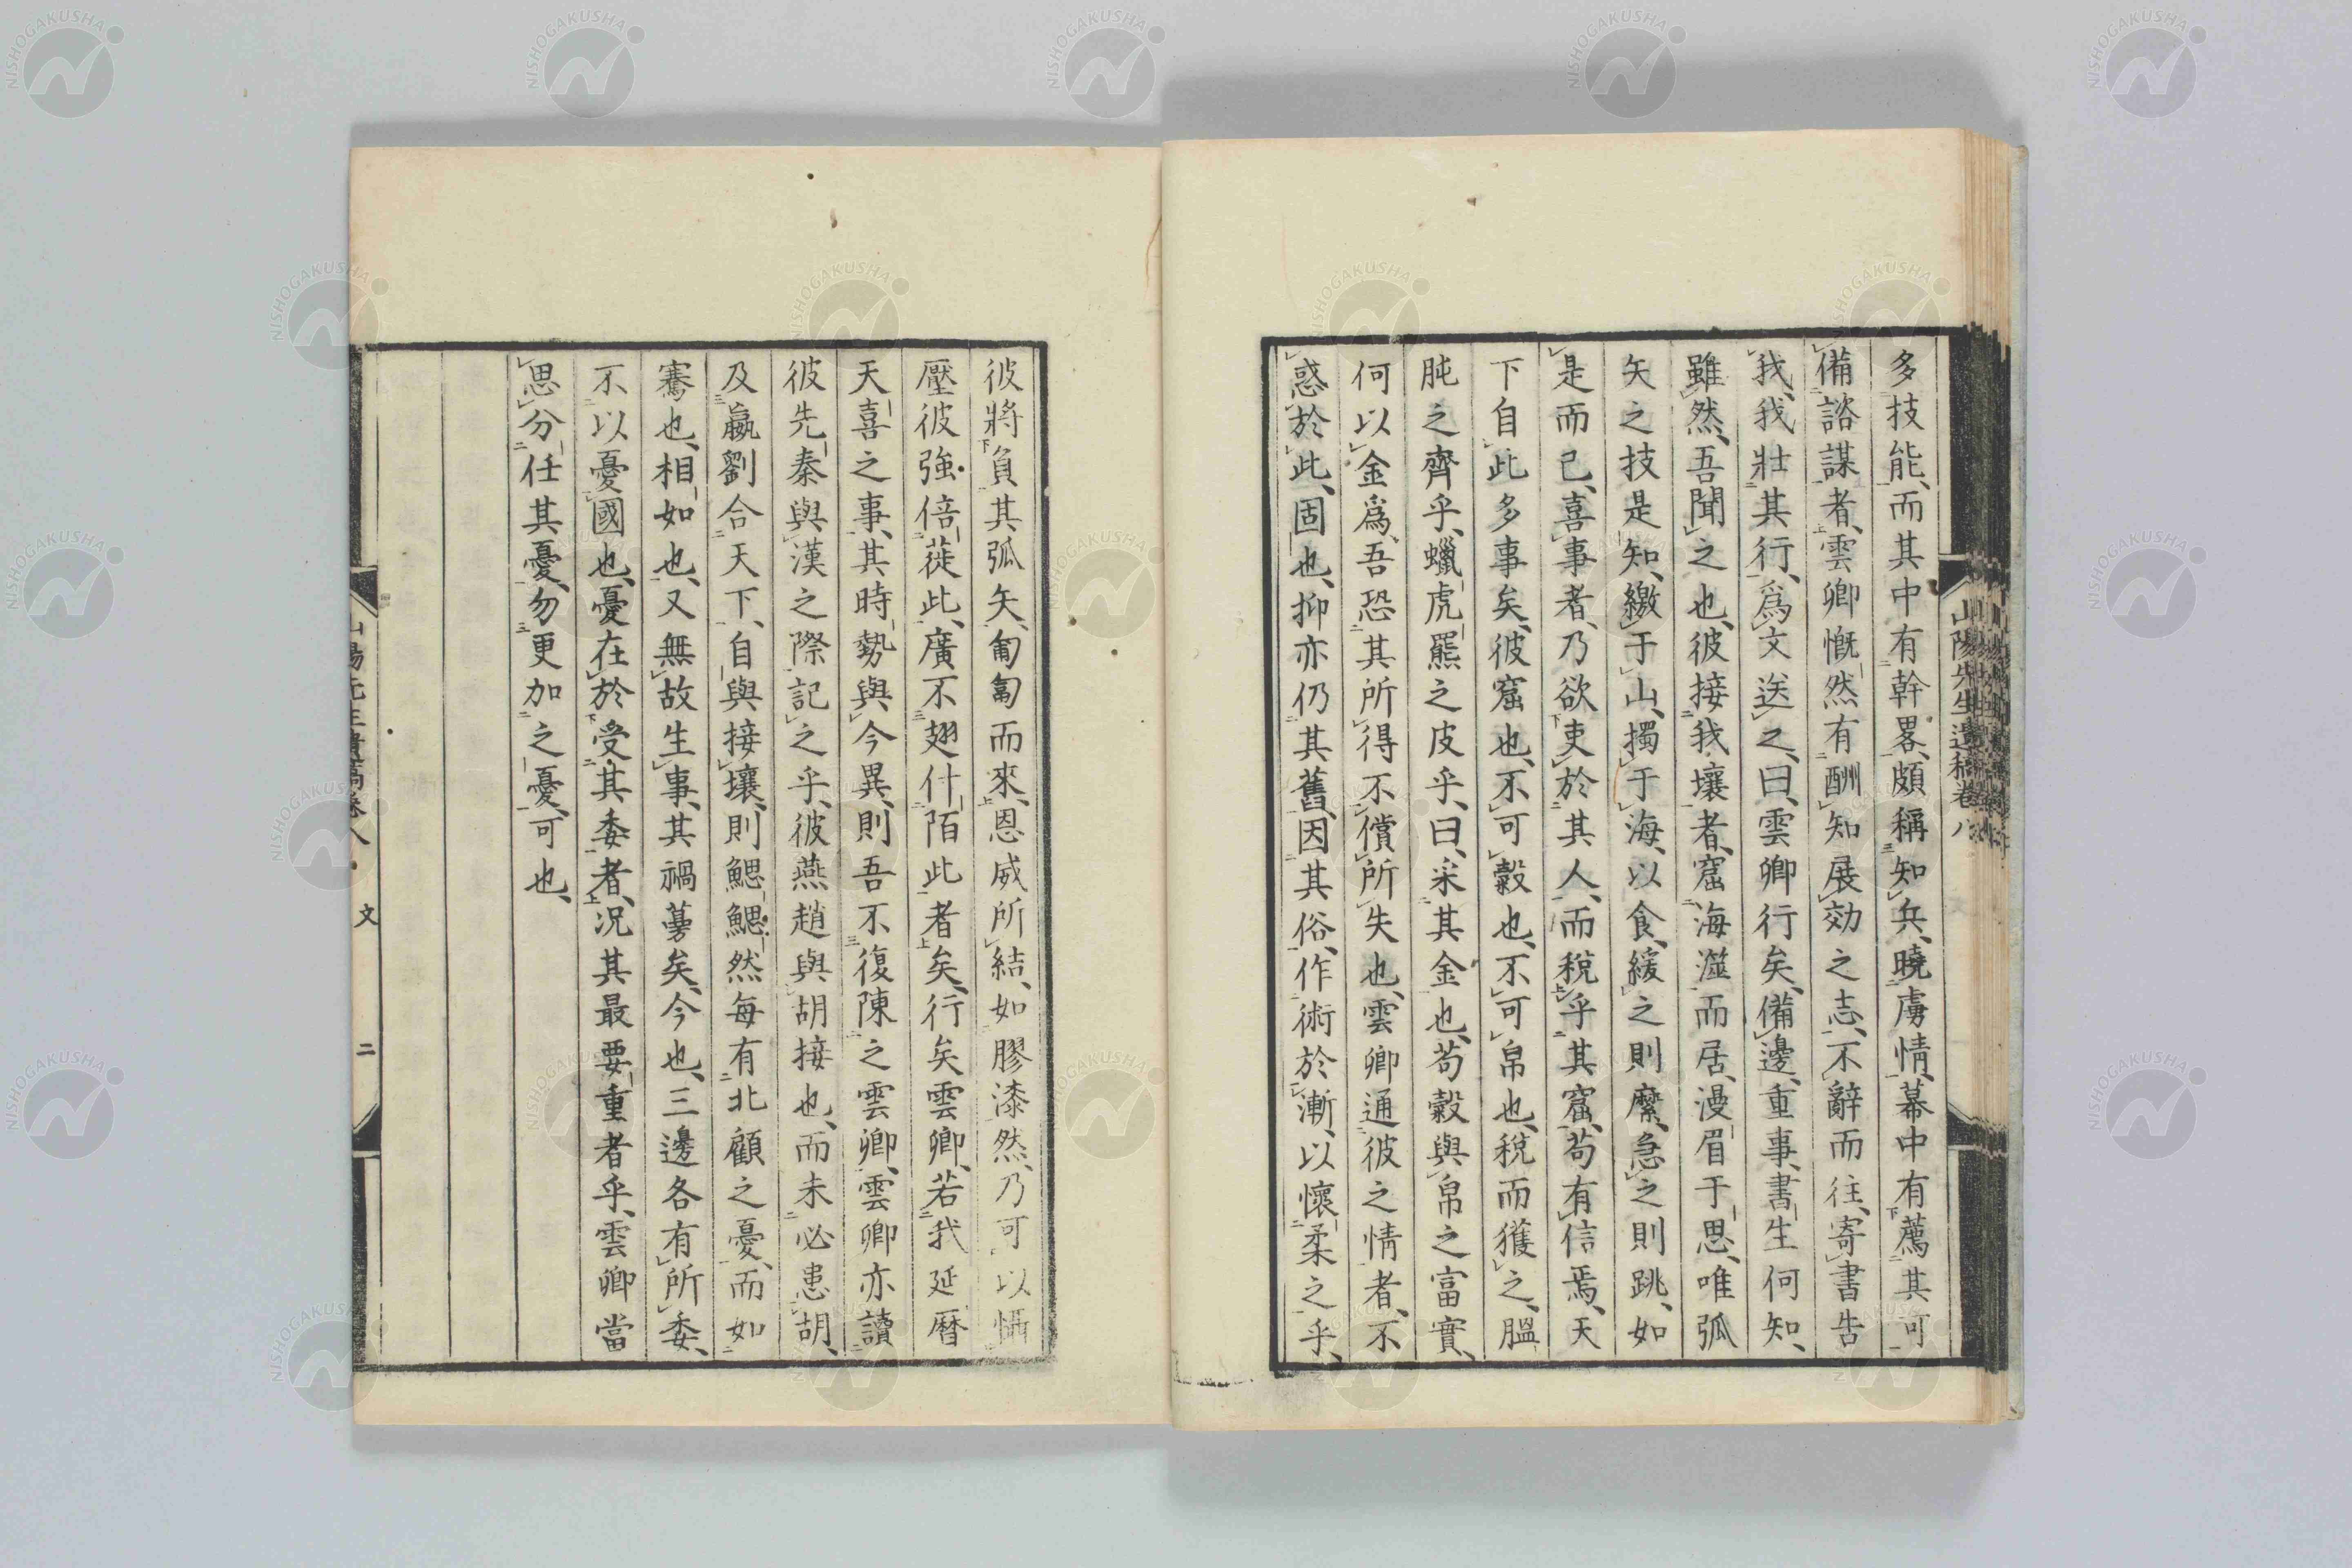 山陽先生遺稿卷八
多技能、而其中有幹畧、頗稱知兵、曉虜情、幕中有薦其可
備諮謀者、雲卿慨然有酬知展効之志、不辭而往、寄書告
我、我壯其行、爲文送之、曰、雲卿行矣、備邊、重事、書生何知、
雖然、吾聞之也、彼接我壤者、窟海澨而居、漫眉于思、唯弧
矢之技是知、繳于山、擉于海、以食、緩之則縻、急之則跳、如
是而已、喜事者、乃欲吏於其人、而稅乎其窟、苟有信焉、天
下自此多事矣、彼窟也、不可穀也、不可帛也、稅而獲之、膃
肭之齊乎、蠟虎羆之皮乎、曰、采其金也、苟穀與帛之富實、
何以金爲、吾恐其所得不償所失也、雲卿通彼之情者、不
惑於此、固也、抑亦仍其舊、因其俗、作術於漸、以懷柔之乎、
彼將負其弧矢、匍匐而來、恩威所結、如膠漆然、乃可以懾
壓彼強倍蓰此、廣不翅什陌此者矣、行矣雲卿、若我延曆
天喜之事、其時勢與今異、則吾不復陳之雲卿、雲卿亦讀
彼先秦與漢之際記之乎、彼燕趙與胡接也、而未必患胡、
及嬴劉合天下、自與接壤、則鰓鰓然每有北顧之憂、而如
騫也、相如也、又無故生事、其禍蔓矣、今也、三邊各有所委、
不以憂國也、憂在於受其委者、况其最要重者乎、雲卿當
思分任其憂、勿更加之憂、可也、
山陽先生遺稿卷八　文　二
NISHOGAKUSHA